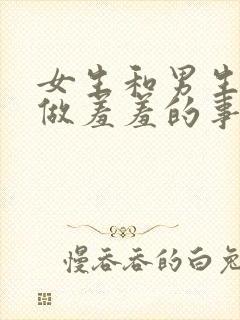 女生和男生
做羞羞的事
慢吞吞的白兔